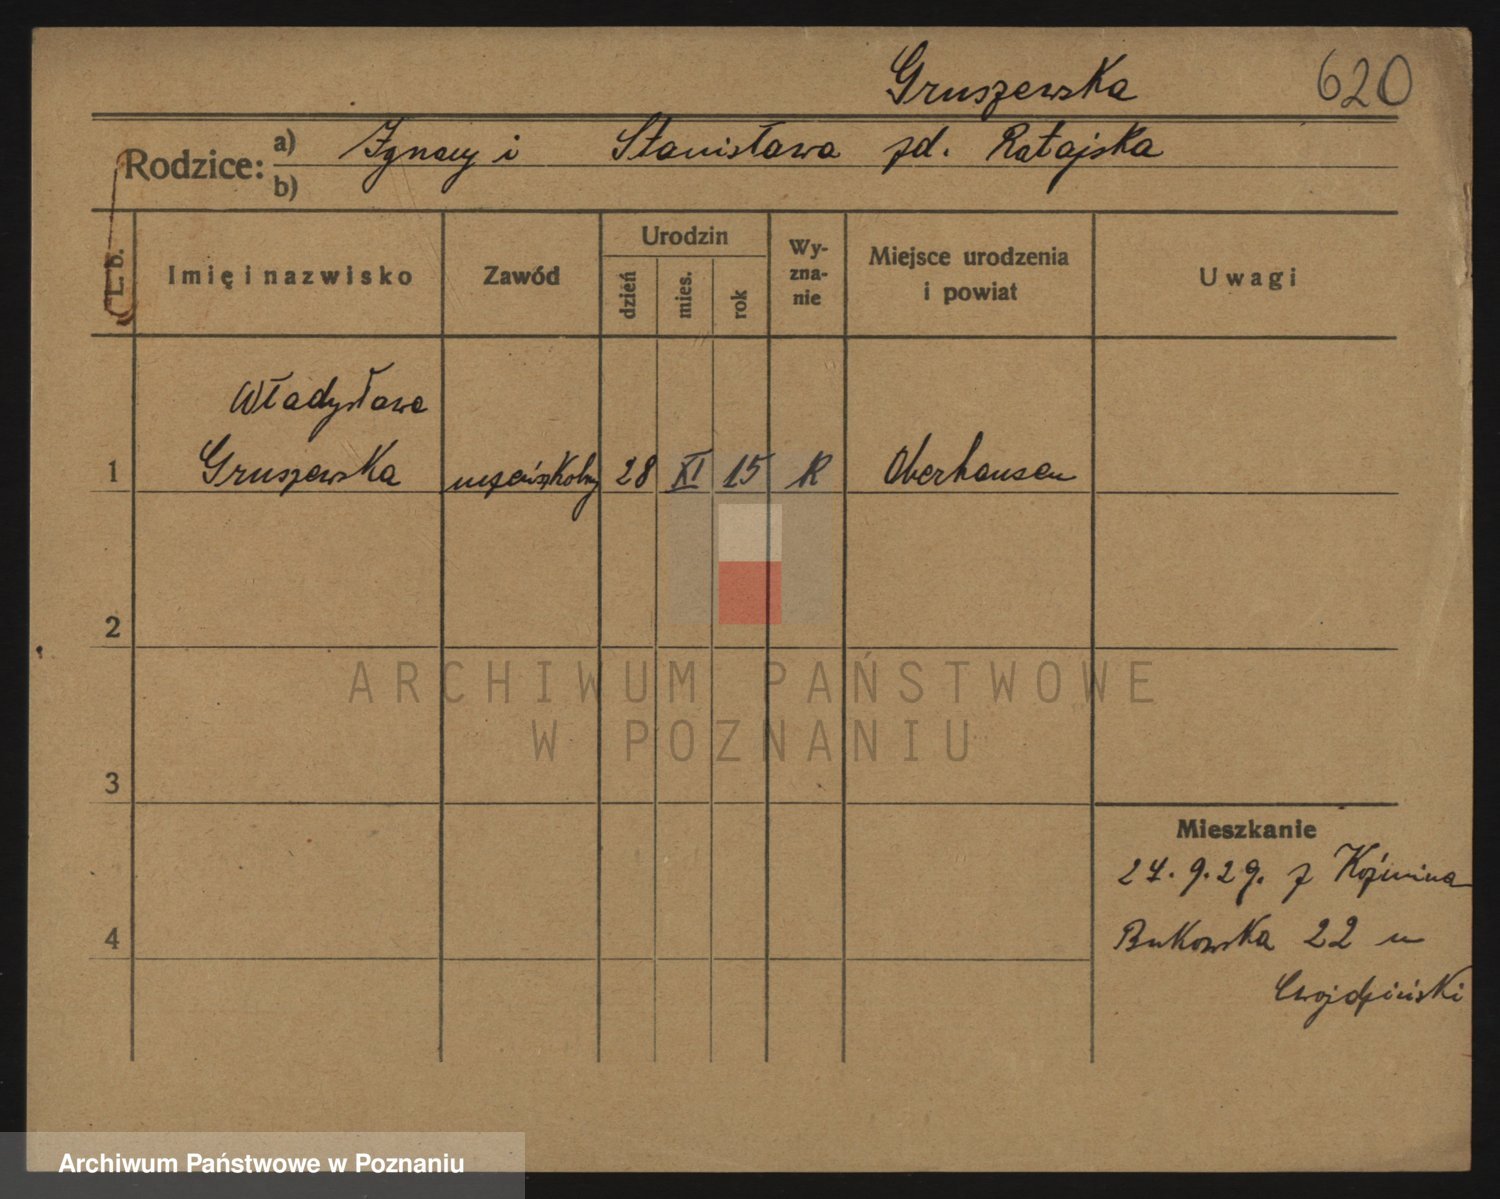 Gruszewska 620
Rodzice: a) Ignacy i Stanisława zd. Ratajska
b)
L. b. Imię i nazwisko Zawód Urodzin Wy-zna-nie Miejsce urodzenia i powiat Uwagi
dzień mies. rok
Władysława
1 Gruszewska 28 XI 15 R Oberhausen
2
ARCHIWUM PAŃSTWOWE
W POZNANIU
3
Mieszkanie
27.9.29. z Koźmina
4 Bukowska 22 u
Cwojdziński
Archiwum Państwowe w Poznaniu